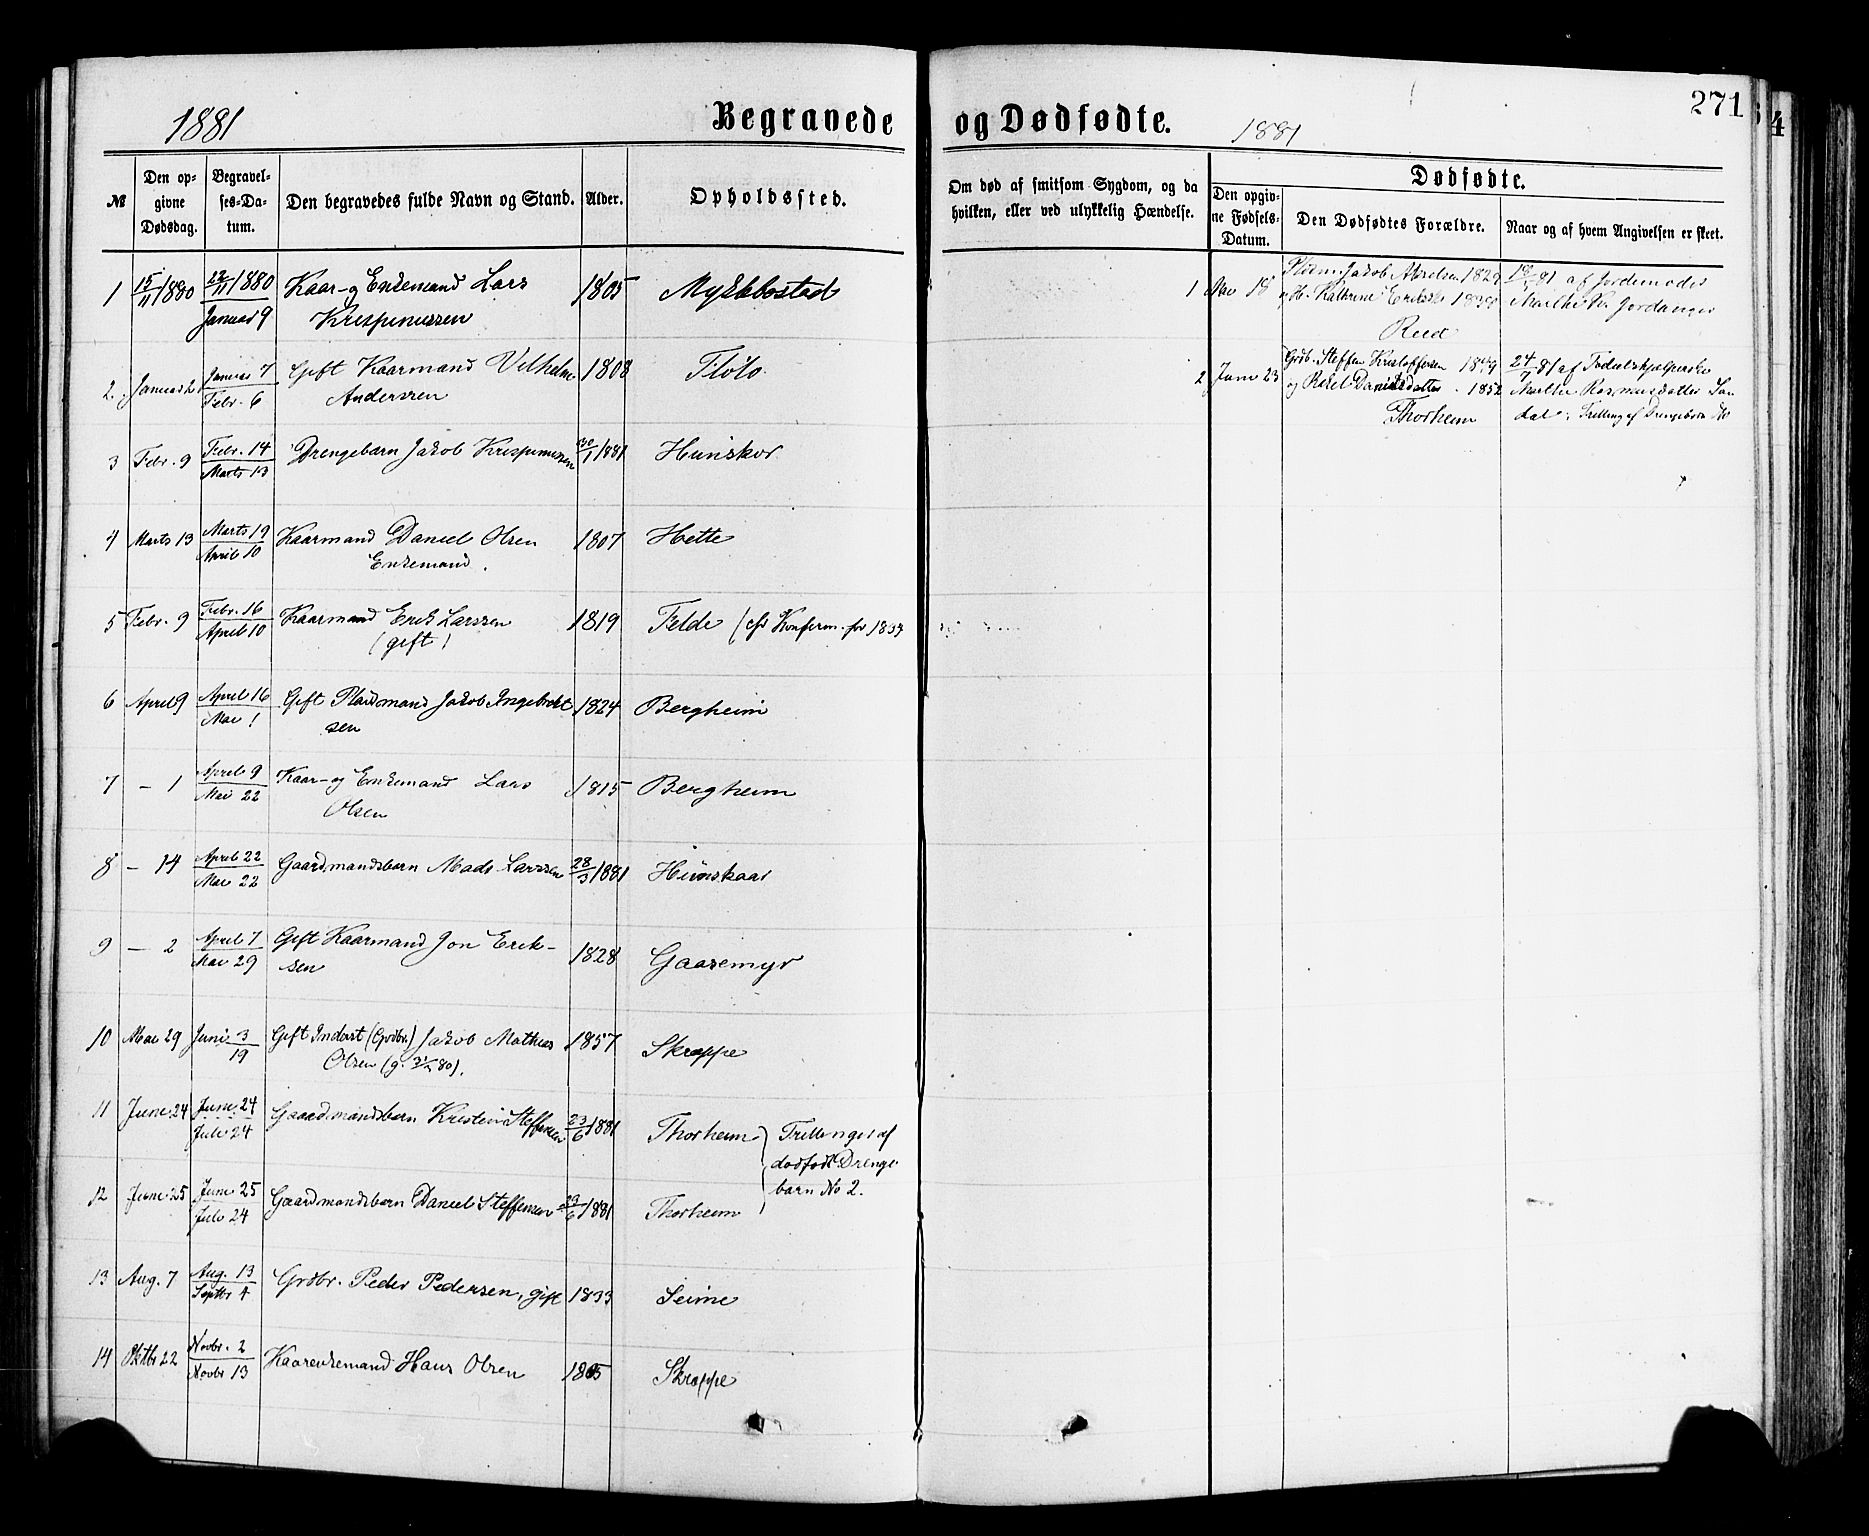 1881
Begravede og Dødfødte.
1881
271
4
№
Den op-
givne
Dødsdag.
Begravel-
ses-Da-
tum.
Den begravedes fulde Navn og Stand.
Alder.
Opholdssted.
Om død af smitsom Sygdom, og da
hvilken, eller ved ulykkelig Hændelse.
Dødfødte.
Den opgiv-
ne Fødsels-
Datum.
Den Dødfødtes Forældre.
Naar og af hvem Angivelsen er skeet.
1 15/11 1880 /11 1880 Kaar- og Enkemand Lars 1805 Myklebostad
Januar 9 Krispinussen
2. Januar 2 Januar 7 Gift Kaarmand Vilhelm 1808 Flölo
Febr. 6 Anderssen
3 Febr. 9 Febr. 14 Drengebarn Jakob Krispinussen 30/1 1881 Hunskor
Marts 13
4 Marts 13 Marts 19 Kaarmand Daniel Olsen 1807 Hette
April 10 Enkemand.
5 Febr. 9 Febr. 16 Kaarmand Erik Larssen 1819 Felde (cfr Konferm. for 1837
April 10 (gift)
6 April 9 April 16 Gift Pladsmand Jakob Ingebrikt 1824 Bergheim
Mai 1 sen
7 – 1 April 9 Kaar- og Enkemand Lars 1815 Bergheim
Mai 22 Olsen
8 – 14 April 22 Gaardmandsbarn Mads Larssen 28/3 1881 Hunskaar
Mai 22
9 – 2 April 7 Gift Kaarmand Jon Erik- 1828 Gaasemyr
Mai 29 sen
10 Mai 29 Juni 3 Gift Inderst (Grdbr.) Jakob Mathias 1857 Skrappe
19 Olsen (g. 80).
11 Juni 24 Juni 24 Gaardmandsbarn Kristen Steffensen 23/6 1881 Thorheim
Juli 24
Trillinger af
dødfødt Drenge
barn No 2.
12 Juni 25 Juni 25 Gaardmandsbarn Daniel Steffensen 23/6 1881 Thorheim
Juli 24
13 Aug. 7 Aug. 13 Grdbr. Peder Pedersen, gift 1833 Seime
Septbr 4
14 Oktbr 22 Novbr. 2 Kaarenkemand Hans Olsen 1805 Skrappe
Novbr 13
1 Mai 18 Jakob Abrelsen 1829 81 af Jordemoder
og H. Kathrine Marthe Jordanger
Reed
2 Juni 23 Grdb. Steffen Kristoffersen 1849 24/7 81 af Fødselshjælperske
og Rakel Danielsdatter 1852 Marthe Rasmusdatter San
Thorheim dal. Trilling af Drengebørn